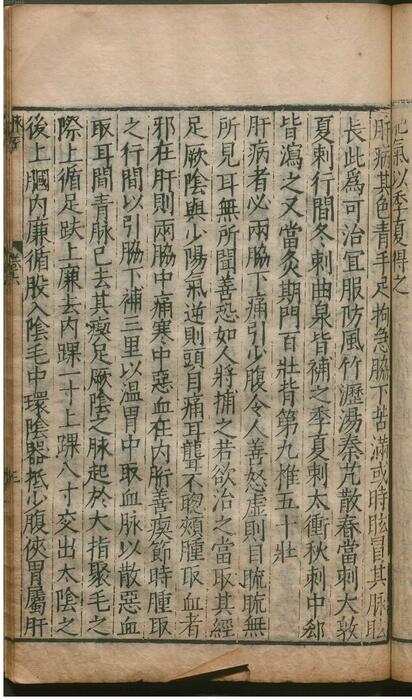 肥氣以季夏得之
肝病其色青手足拘急脇下苦滿或時眩冒其脉弦
長此爲可治宜服防風竹瀝湯秦艽散春當刺大敦
夏刺行間冬刺曲泉皆補之季夏刺太衝秋刺中郄
皆瀉之又當灸期門百壯背第九椎五十壯
肝病者必兩脇下痛引少腹令人善怒虛則目䀮䀮無
所見耳無所聞善恐如人將捕之若欲治之當取其經
足厥陰與少陽氣逆則頭目痛耳聾不聦頰腫取血者
邪在肝則兩脇中痛寒中惡血在內胻善瘈節時腫取
之行間以引脇下補三里以溫胃中取血脉以散惡血
取耳間青脉已去其瘈足厥陰之脉起於大指聚毛之
際上循足趺上廉去內踝一寸上踝八寸交出太陰之
後上膕內廉循股入陰毛中環陰器抵少腹俠胃屬肝